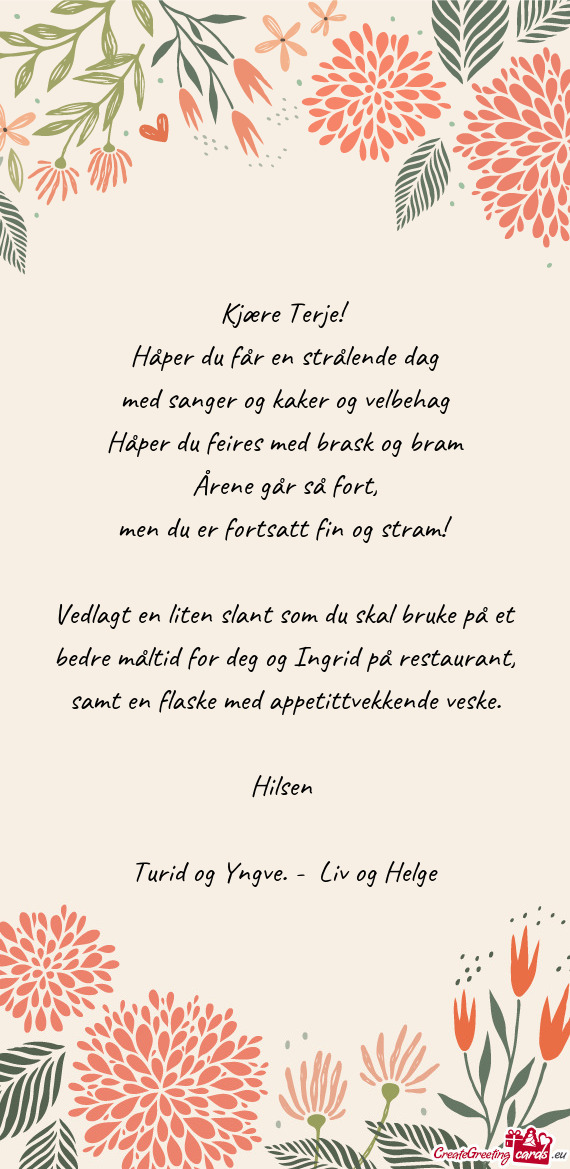 Kjære Terje!
Håper du får en strålende dag
med sanger og kaker og velbehag
Håper du feires med brask og bram
Årene går så fort,
men du er fortsatt fin og stram!
Vedlagt en liten slant som du skal bruke på et
bedre måltid for deg og Ingrid på restaurant,
samt en flaske med appetittvekkende veske.
Hilsen
Turid og Yngve. - Liv og Helge
CreateGreetingcards.eu